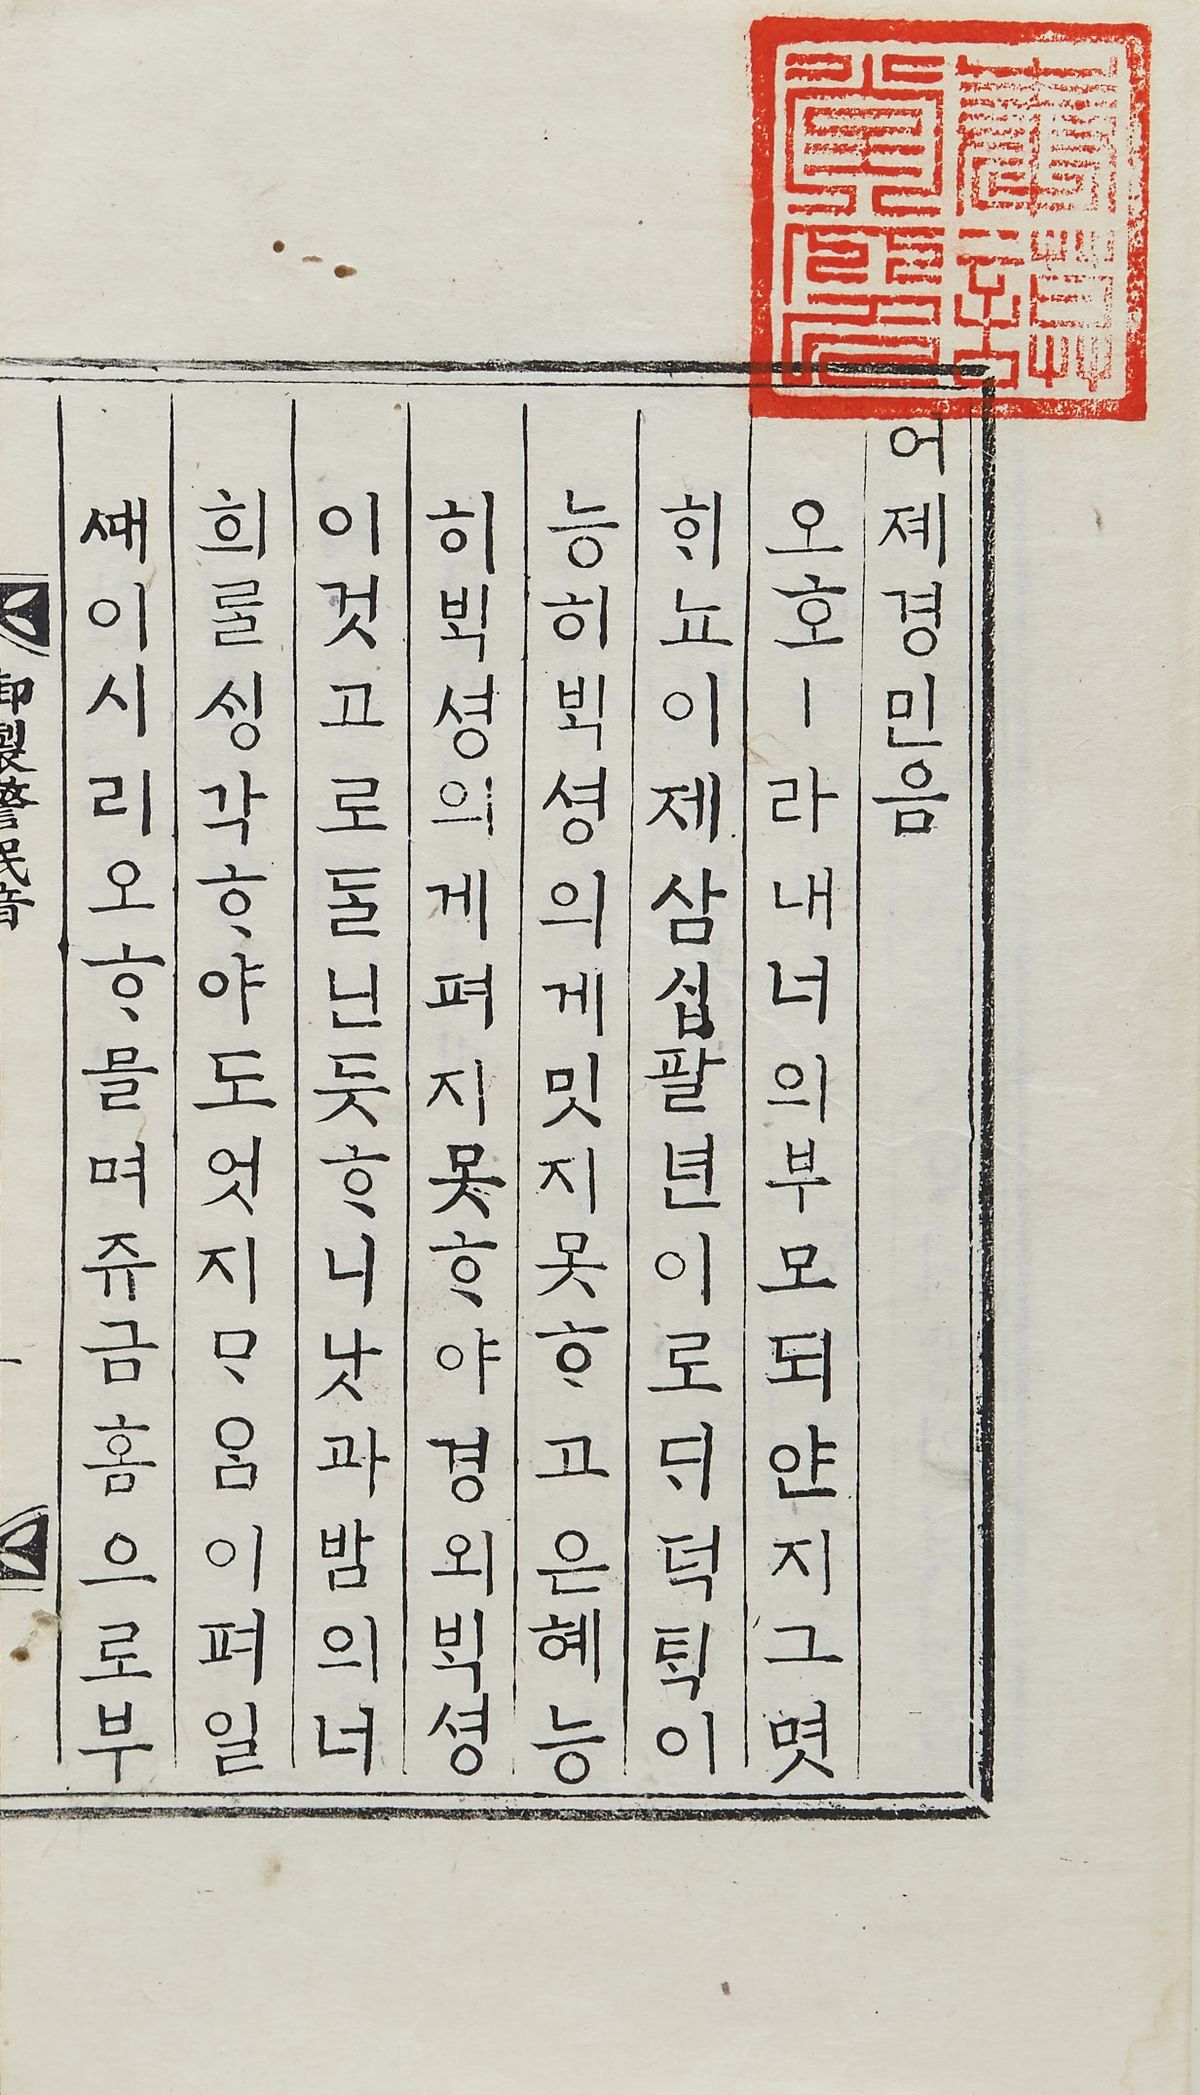 어졔경민음
오호ㅣ라내너의부모되얀지그몃
ᄒᆡ뇨이제삼십팔년이로ᄃᆡ덕ᄐᆡᆨ이
능히ᄇᆡᆨ셩의게밋지못ᄒᆞ고은혜능
히ᄇᆡᆨ셩의게펴지못ᄒᆞ야경외ᄇᆡᆨ셩
이것고로돌닌듯ᄒᆞ니낫과밤의너
희롤싱각ᄒᆞ야도엇지ᄆᆞ음이펴일
ᄯᅢ이시리오ᄒᆞ믈며쥬금홈으로부
御製警民音
一